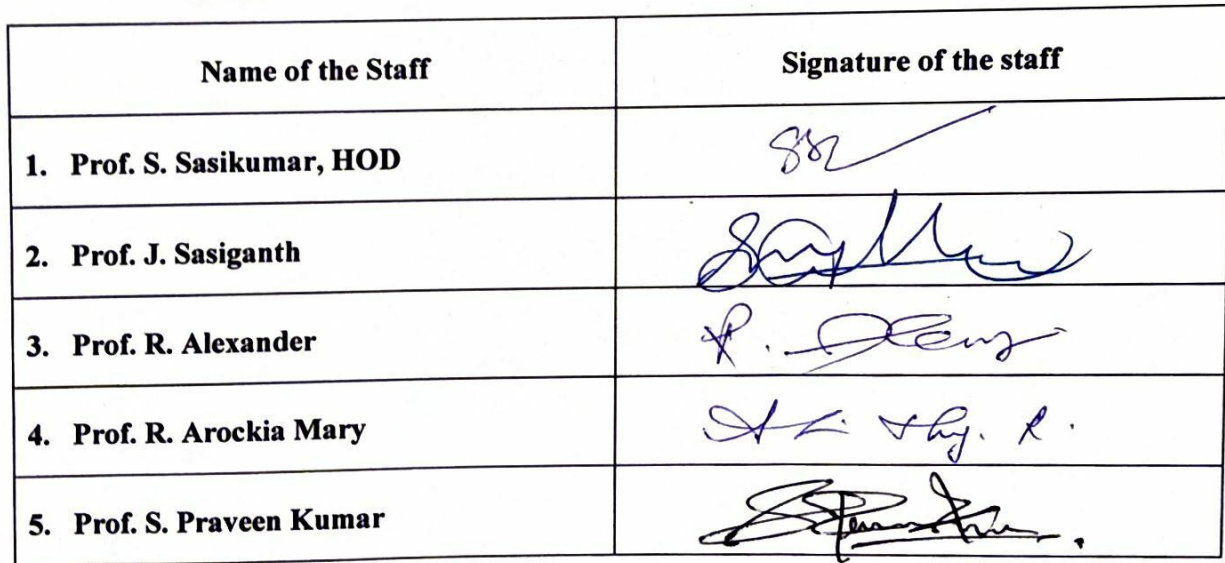 Name of the Staff Signature of the staff
1. Prof. S. Sasikumar, HOD
2. Prof. J. Sasiganth
3. Prof. R. Alexander R.
4. Prof. R. Arockia Mary R.
5. Prof. S. Praveen Kumar